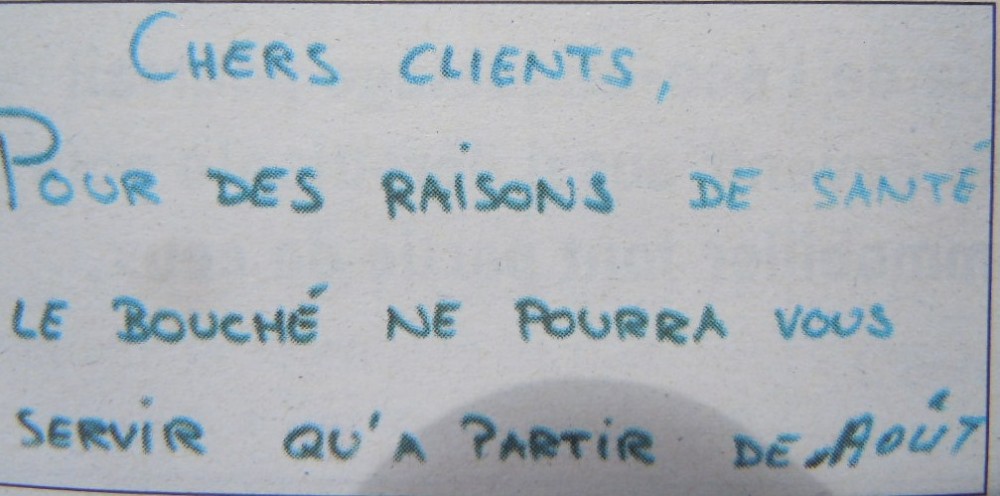 CHERS CLIENTS,
POUR DES RAISONS DE SANTÉ
LE BOUCHÉ NE POURRA VOUS
SERVIR QU'A PARTIR DE AOÛT